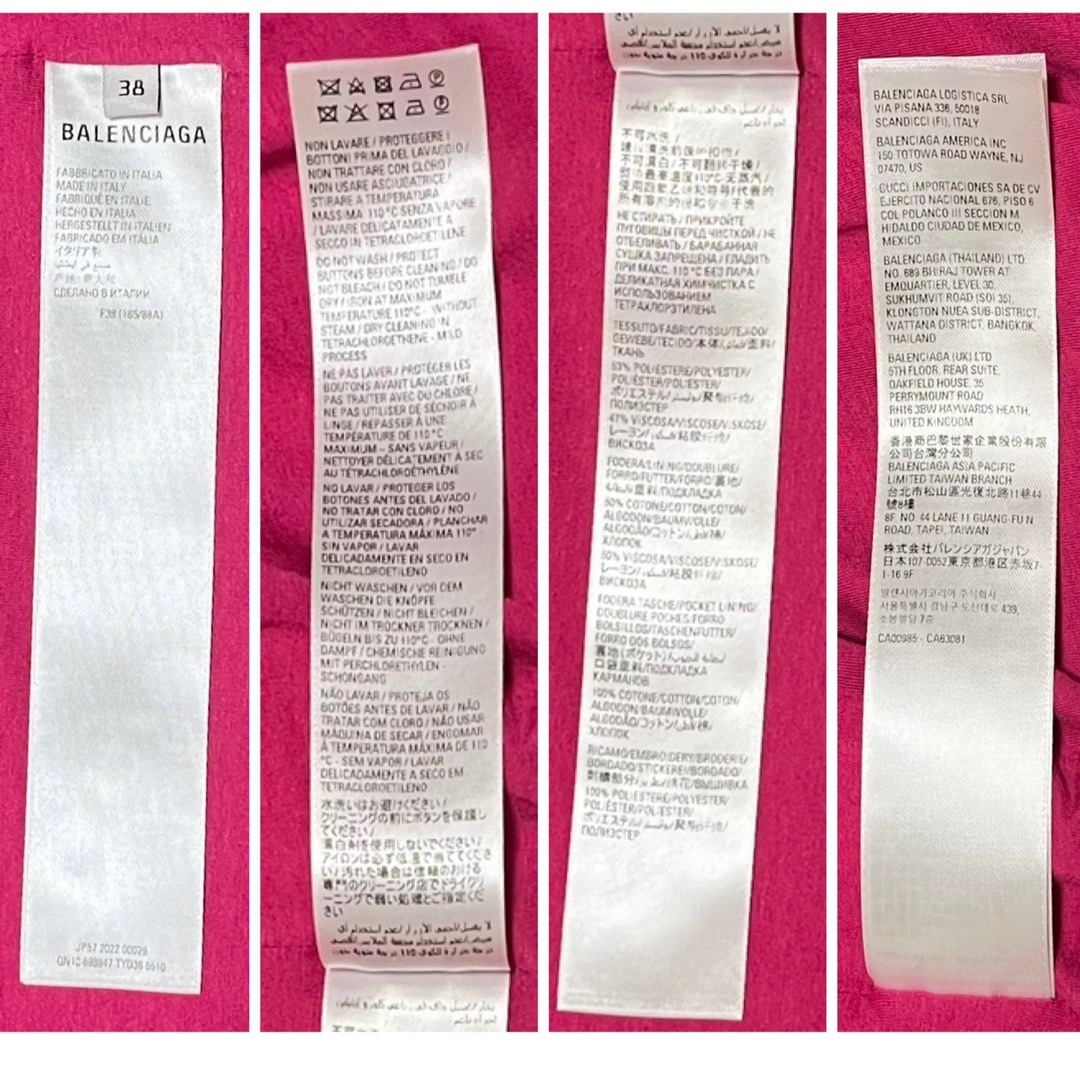 38
BALENCIAGA
FABBRICATO IN ITALIA
MADE IN ITALY
FABRIQUÉ EN ITALIE
HECHO EN ITALIA
HERGESTELLT IN ITALIEN
FABRICADO EM ITÁLIA
イタリア製
СДЕЛАНО В ИТАЛИИ
F38 (165/88A)
JP57 2022 00029
NON LAVARE / PROTEGGERE I
BOTTONI PRIMA DEL LAVAGGIO /
NON TRATTARE CON CLORO /
NON USARE ASCIUGATRICE /
STIRARE A TEMPERATURA
MASSIMA 110°C SENZA VAPORE
/ LAVARE DELICATAMENTE A
SECCO IN TETRACLOROETILENE
DO NOT WASH / PROTECT
BUTTONS BEFORE CLEANING / DO
NOT BLEACH / DO NOT TUMBLE
DRY / IRON AT MAXIMUM
TEMPERATURE 110°C - WITHOUT
STEAM / DRY CLEANING IN
TETRACHLOROETHENE - MILD
PROCESS
NE PAS LAVER / PROTÉGER LES
BOUTONS AVANT LAVAGE / NE
PAS TRAITER AVEC DU CHLORE /
NE PAS UTILISER DE SÉCHOIR À
LINGE / REPASSER À UNE
TEMPÉRATURE DE 110°C
MAXIMUM - SANS VAPEUR /
NETTOYER DÉLICATEMENT À SEC
AU TÉTRACHLOROÉTHYLÈNE
NO LAVAR / PROTEGER LOS
BOTONES ANTES DEL LAVADO /
NO TRATAR CON CLORO / NO
UTILIZAR SECADORA / PLANCHAR
A TEMPERATURA MÁXIMA 110° -
SIN VAPOR / LAVAR
DELICADAMENTE EN SECO EN
TETRACLOROETILENO
NICHT WASCHEN / VOR DEM
WASCHEN DIE KNÖPFE
SCHÜTZEN / NICHT BLEICHEN /
NICHT IM TROCKNER TROCKNEN /
BÜGELN BIS ZU 110°C - OHNE
DAMPF / CHEMISCHE REINIGUNG
MIT PERCHLORETHYLEN -
SCHONGANG
NÃO LAVAR / PROTEJA OS
BOTÕES ANTES DE LAVAR / NÃO
TRATAR COM CLORO / NÃO USAR
MÁQUINA DE SECAR / ENGOMAR
À TEMPERATURA MÁXIMA DE 110
°C - SEM VAPOR / LAVAR
DELICADAMENTE A SECO EM
TETRACLOROETILENO
水洗いはお避けください/
クリーニングの前にボタンを保護し
てください/
漂白剤を使用しないでください/
アイロンは必ず低温で当ててくださ
い/汚れた場合は信頼のおける
専門のクリーニング店でドライクリ
ーニングで弱い処理とご指定くだ
さい
لا يغسل/احمي الأزرار/عدم استخدام أي
مبيض/عدم استخدام مجففة الملابس/أقصى
درجة حرارة للكوي 110 درجة مئوية بدون
不可水洗 /
建议清洗前保护扣件/
不可漂白/不可翻转干燥/
熨烫最高温度110°C无蒸汽/
使用四氯乙烯和符号F代表的
所有溶剂的缓和专业干洗
НЕ СТИРАТЬ / ПРИКРОЙТЕ
ПУГОВИЦЫ ПЕРЕД ЧИСТКОЙ / НЕ
ОТБЕЛИВАТЬ / БАРАБАННАЯ
СУШКА ЗАПРЕЩЕНА / ГЛАДИТЬ
ПРИ МАКС. 110°C БЕЗ ПАРА /
ДЕЛИКАТНАЯ ХИМЧИСТКА С
ИСПОЛЬЗОВАНИЕМ
ТЕТРАХЛОРЭТИЛЕНА
TESSUTO/FABRIC/TISSU/TEJIDO/
GEWEBE/TECIDO/本体/面料/
ТКАНЬ
53% POLIESTERE/POLYESTER/
POLIÉSTER/POLYESTER/
ПОЛИЭСТЕР
47% VISCOSA/VISCOSE/VISKOSE/
ВИСКОЗА
FODERA/LINING/DOUBLURE/
FORRO/FUTTER/FORRO/裏地/
里料/ПОДКЛАДКА
50% COTONE/COTTON/COTON/
ALGODON/BAUMWOLLE/
ХЛОПОК
50% VISCOSA/VISCOSE/VISKOSE/
ВИСКОЗА
FODERA TASCHE/POCKET LINING/
DOUBLURE POCHES/FORRO
BOLSILLOS/TASCHENFUTTER/
FORRO DOS BOLSOS/
裏地(ポケット)/
口袋里料/ПОДКЛАДКА
КАРМАНОВ
100% COTONE/COTTON/COTON/
ALGODON/BAUMWOLLE/
ХЛОПОК
RICAMO/EMBROIDERY/BRODERIE/
BORDADO/STICKEREI/BORDADO/
刺繍部分/绣花/ВЫШИВКА
100% POLIESTERE/POLYESTER/
POLIÉSTER/POLYESTER/
ПОЛИЭСТЕР
BALENCIAGA LOGISTICA SRL
VIA PISANA 336, 50018
SCANDICCI (FI), ITALY
BALENCIAGA AMERICA INC
150 TOTOWA ROAD WAYNE, NJ
07470, US
GUCCI IMPORTACIONES SA DE CV
EJERCITO NACIONAL 676, PISO 6
COL POLANCO III SECCION M
HIDALGO CIUDAD DE MEXICO,
MEXICO
BALENCIAGA (THAILAND) LTD
NO. 689 BHIRAJ TOWER AT
EMQUARTIER, LEVEL 30,
SUKHUMVIT ROAD (SOI 35),
KLONGTON NUEA SUB-DISTRICT,
WATTANA DISTRICT, BANGKOK,
THAILAND
BALENCIAGA (UK) LTD
5TH FLOOR, REAR SUITE,
OAKFIELD HOUSE, 35
PERRYMOUNT ROAD
RH16 3BW HAYWARDS HEATH,
UNITED KINGDOM
香港商巴黎世家企業股份有限
公司台灣分公司
BALENCIAGA ASIA PACIFIC
LIMITED TAIWAN BRANCH
台北市松山區光復北路11巷44
號8樓
8F. NO. 44 LANE 11 GUANG-FU N
ROAD, TAIPEI, TAIWAN
株式会社バレンシアガジャパン
日本107-0052東京都港区赤坂7-
1-16 9F
발렌시아가코리아 주식회사
서울특별시 강남구 도산대로 439,
소봉빌딩 7층
CA00985 - CA63081